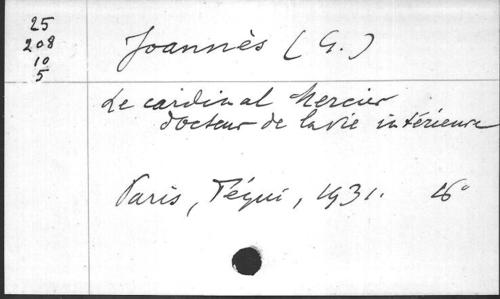 25
208
10
5
Joannès (G.)
Le cardinal Mercier
docteur de la vie intérieure
Paris, Téqui, 1931. 16°